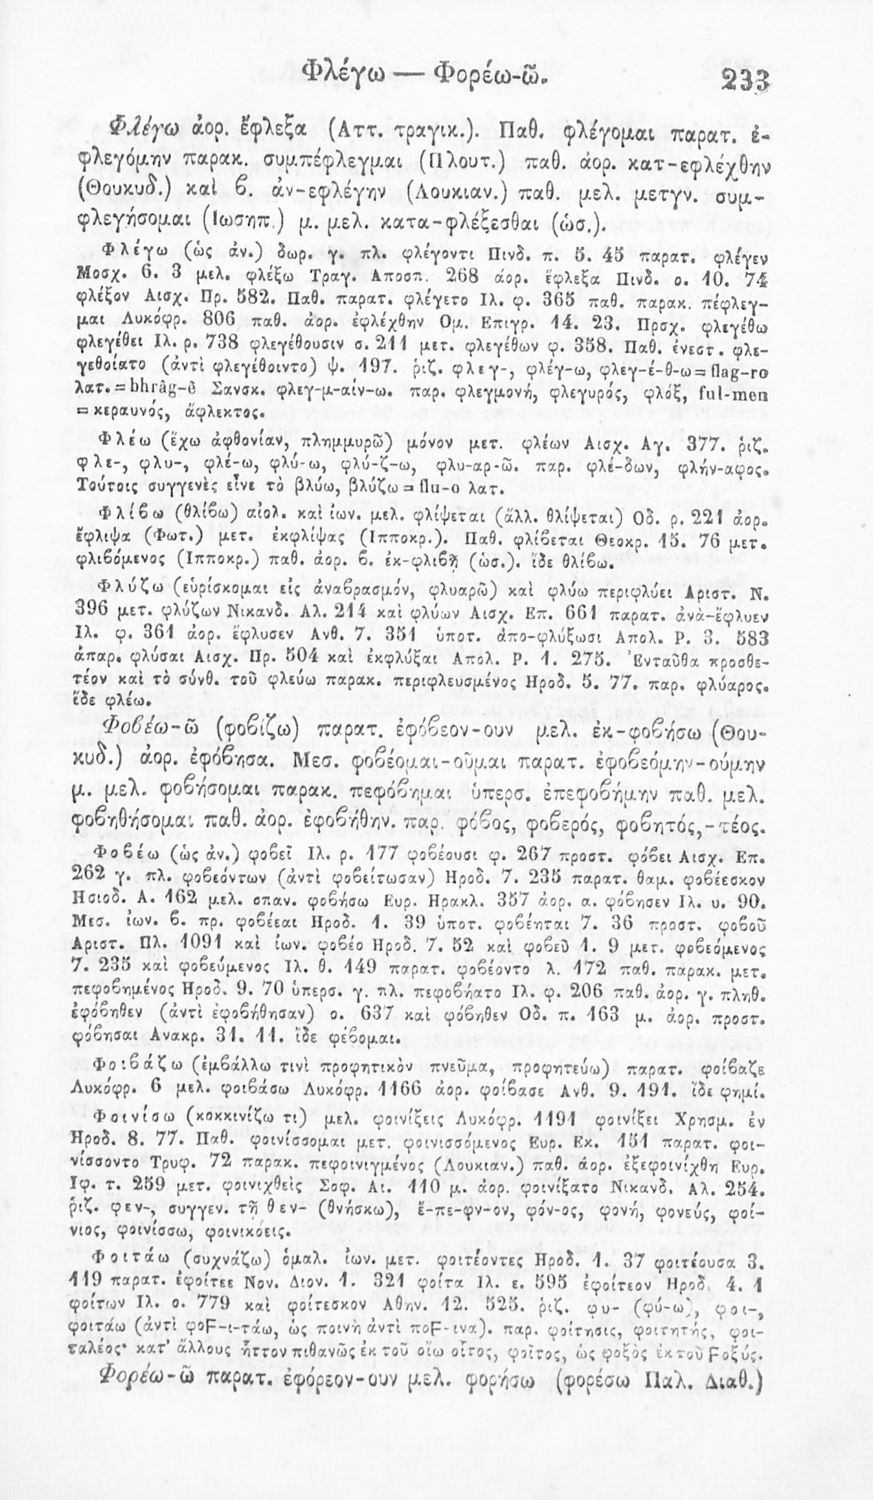 Φλέγω — Φορέω-ῶ.
233
Φλέγω ἀορ. ἔφλεξα (Αττ. τραγικ.). Παθ. φλέγομαι παρατ. ἐ-
φλεγόμην παρακ. συμπέφλεγμαι (Πλουτ.) παθ. ἀορ. κατ-εφλέχθην
(Θουκυδ.) καὶ β. ἀν-εφλέγην (Λουκιαν.) παθ. μελ. μετγν. συμ-
φλεγήσομαι (Ιωσηπ.) μ. μελ. κατα-φλέξεσθαι (ὡσ.).
Φλέγω (ὡς ἀν.) δωρ. γ. πλ. φλέγοντι Πινδ. π. 5. 45 παρατ. φλέγεν
Μοσχ. 6. 3 μελ. φλέξω Τραγ. Αποσπ. 268 ἀορ. ἔφλεξα Πινδ. ο. 10. 74
φλέξον Αισχ. Πρ. 582. Παθ. παρατ. φλέγετο Ιλ. φ. 365 παθ. παρακ. πέφλεγ-
μαι Λυκόφρ. 806 παθ. ἀορ. ἐφλέχθην Ομ. Επιγρ. 14. 23. Πρσχ. φλεγέθω
φλεγέθει Ιλ. ρ. 738 φλεγέθουσιν σ. 211 μετ. φλεγέθων φ. 358. Παθ. ἐνεστ. φλε-
γεθοίατο (ἀντὶ φλεγέθοιντο) ψ. 197. ῥιζ. φλεγ-, φλέγ-ω, φλεγ-έ-θ-ω = flag-ro
λατ. = bhrâg-ê Σανσκ. φλεγ-μ-αίν-ω. παρ. φλεγμονή, φλεγυρός, φλόξ, ful-men
= κεραυνός, ἄφλεκτος.
Φλέω (ἔχω ἀφθονίαν, πλημμυρῶ) μόνον μετ. φλέων Αισχ. Αγ. 377. ῥιζ.
φλε-, φλυ-, φλέ-ω, φλύ-ω, φλύ-ζ-ω, φλυ-αρ-ῶ. παρ. φλέ-δων, φλήν-αφος.
Τούτοις συγγενὲς εἶνε τὸ βλύω, βλύζω = flu-o λατ.
Φλίβω (θλίβω) αἰολ. καὶ ἰων. μελ. φλίψεται (ἄλλ. θλίψεται) Οδ. ρ. 221 ἀορ.
ἔφλιψα (Φωτ.) μετ. ἐκφλίψας (Ιπποκρ.). Παθ. φλίβεται Θεοκρ. 15. 76 μετ.
φλιβόμενος (Ιπποκρ.) παθ. ἀορ. β. ἐκ-φλιβῇ (ὡσ.). ἴδε θλίβω.
Φλύζω (εὑρίσκομαι εἰς ἀναβρασμόν, φλυαρῶ) καὶ φλύω περιφλύει Αριστ. Ν.
396 μετ. φλύζων Νικανδ. Αλ. 214 καὶ φλύων Αισχ. Επ. 661 παρατ. ἀνὰ-ἔφλυεν
Ιλ. φ. 361 ἀορ. ἔφλυσεν Ανθ. 7. 351 ὑποτ. ἀπο-φλύξωσι Απολ. Ρ. 3. 583
ἀπαρ. φλύσαι Αισχ. Πρ. 504 καὶ ἐκφλύξαι Απολ. Ρ. 1. 275. Ἐνταῦθα προσθε-
τέον καὶ τὸ σύνθ. τοῦ φλεύω παρακ. περιφλευσμένος Ηροδ. 5. 77. παρ. φλύαρος.
ἴδε φλέω.
Φοβέω-ῶ (φοβίζω) παρατ. ἐφόβεον-ουν μελ. ἐκ-φοβήσω (Θου-
κυδ.) ἀορ. ἐφόβησα. Μεσ. φοβέομαι-οῦμαι παρατ. ἐφοβεόμην-ούμην
μ. μελ. φοβήσομαι παρακ. πεφόβημαι ὑπερσ. ἐπεφοβήμην παθ. μελ.
φοβηθήσομαι παθ. ἀορ. ἐφοβήθην. παρ. φόβος, φοβερός, φοβητός,-τέος.
Φοβέω (ὡς ἀν.) φοβεῖ Ιλ. ρ. 177 φοβέουσι φ. 267 προστ. φόβει Αισχ. Επ.
262 γ. πλ. φοβεόντων (ἀντὶ φοβείτωσαν) Ηροδ. 7. 235 παρατ. θαμ. φοβέεσκον
Ησιοδ. Α. 162 μελ. σπαν. φοβήσω Ευρ. Ηρακλ. 357 ἀορ. α. φόβησεν Ιλ. υ. 90.
Μεσ. ἰων. β. πρ. φοβέεαι Ηροδ. 1. 39 ὑποτ. φοβέηται 7. 36 προστ. φοβοῦ
Αριστ. Πλ. 1091 καὶ ἰων. φοβέο Ηροδ. 7. 52 καὶ φοβεῦ 1. 9 μετ. φοβεόμενος
7. 235 καὶ φοβεύμενος Ιλ. θ. 149 παρατ. φοβέοντο λ. 172 παθ. παρακ. μετ.
πεφοβημένος Ηροδ. 9. 70 ὑπερσ. γ. πλ. πεφοβήατο Ιλ. φ. 206 παθ. ἀορ. γ. πληθ.
ἐφόβηθεν (ἀντὶ ἐφοβήθησαν) ο. 637 καὶ φόβηθεν Οδ. π. 163 μ. ἀορ. προστ.
φόβησαι Ανακρ. 31. 11. ἴδε φέβομαι.
Φοιβάζω (ἐμβάλλω τινὶ προφητικὸν πνεῦμα, προφητεύω) παρατ. φοίβαζε
Λυκόφρ. 6 μελ. φοιβάσω Λυκόφρ. 1166 ἀορ. φοίβασε Ανθ. 9. 191. ἴδε φημί.
Φοινίσω (κοκκινίζω τι) μελ. φοινίξεις Λυκόφρ. 1191 φοινίξει Χρησμ. ἐν
Ηροδ. 8. 77. Παθ. φοινίσσομαι μετ. φοινισσόμενος Ευρ. Εκ. 151 παρατ. φοι-
νίσσοντο Τρυφ. 72 παρακ. πεφοινιγμένος (Λουκιαν.) παθ. ἀορ. ἐξεφοινίχθη Ευρ.
Ιφ. τ. 259 μετ. φοινιχθεὶς Σοφ. Αι. 110 μ. ἀορ. φοινίξατο Νικανδ. Αλ. 254.
ῥιζ. φεν-, συγγεν. τῇ θεν- (θνήσκω), ἔ-πε-φν-ον, φόν-ος, φονή, φονεύς, φοί-
νιος, φοινίσσω, φοινικόεις.
Φοιτάω (συχνάζω) ὁμαλ. ἰων. μετ. φοιτέοντες Ηροδ. 1. 37 φοιτέουσα 3.
119 παρατ. ἐφοίτεε Νον. Διον. 1. 321 φοίτα Ιλ. ε. 595 ἐφοίτεον Ηροδ. 4. 1
φοίτων Ιλ. ο. 779 καὶ φοίτεσκον Αθην. 12. 525. ῥιζ. φυ- (φύ-ω), φοι-,
φοιτάω (ἀντὶ φοϜ-ι-τάω, ὡς ποινὴ ἀντὶ ποϜ-ινα). παρ. φοίτησις, φοιτητής, φοι-
ταλέος· κατ' ἄλλους ἧττον πιθανῶς ἐκ τοῦ οἴω οἶτος, φοῖτος, ὡς φοξὸς ἐκ τοῦ Ϝοξύς.
Φορέω-ῶ παρατ. ἐφόρεον-ουν μελ. φορήσω (φορέσω Παλ. Διαθ.)